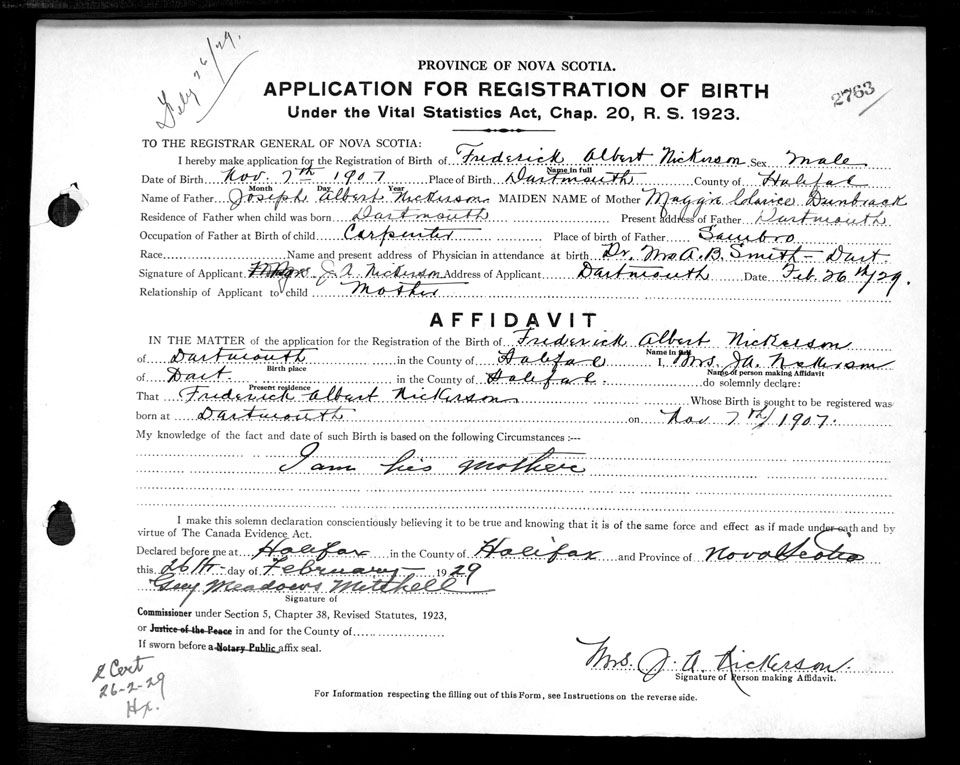 Feby 26/29.
PROVINCE OF NOVA SCOTIA.
APPLICATION FOR REGISTRATION OF BIRTH
2763
Under the Vital Statistics Act, Chap. 20, R. S. 1923.
TO THE REGISTRAR GENERAL OF NOVA SCOTIA:
I hereby make application for the Registration of Birth of Frederick Albert Nickerson Sex Male
Name in full
Date of Birth Nov. 7th 1907 Place of Birth Dartmouth County of Halifax
Month Day Year
Name of Father Joseph Albert Nickerson MAIDEN NAME of Mother Maggie Clarice Dunbrack
Residence of Father when child was born Dartmouth Present address of Father Dartmouth
Occupation of Father at Birth of child Carpenter Place of birth of Father Sambro
Race Name and present address of Physician in attendance at birth Dr. Mrs A. B. Smith - Dart.
Signature of Applicant Mrs J. A. Nickerson Address of Applicant Dartmouth Date Feb. 26th/29.
Relationship of Applicant to child Mother
AFFIDAVIT
IN THE MATTER of the application for the Registration of the Birth of Frederick Albert Nickerson
Name in full
of Dartmouth in the County of Halifax I, Mrs. J.A. Nickerson
Birth place Name of person making Affidavit
of Dart. in the County of Halifax. do solemnly declare:
Present residence
That Frederick Albert Nickerson Whose Birth is sought to be registered was
born at Dartmouth on Nov 7th/1907.
My knowledge of the fact and date of such Birth is based on the following Circumstances :—
I am his mother
I make this solemn declaration conscientiously believing it to be true and knowing that it is of the same force and effect as if made under oath and by
virtue of The Canada Evidence Act.
Declared before me at Halifax in the County of Halifax and Province of Nova Scotia
this 26th day of February 1929
Guy Meadows Mitchell
Signature of
Commissioner under Section 5, Chapter 38, Revised Statutes, 1923,
or Justice of the Peace in and for the County of
If sworn before a Notary Public affix seal.
Mrs. J. A. Nickerson
Signature of Person making Affidavit.
Cert
26-2-29
Hx.
For Information respecting the filling out of this Form, see Instructions on the reverse side.